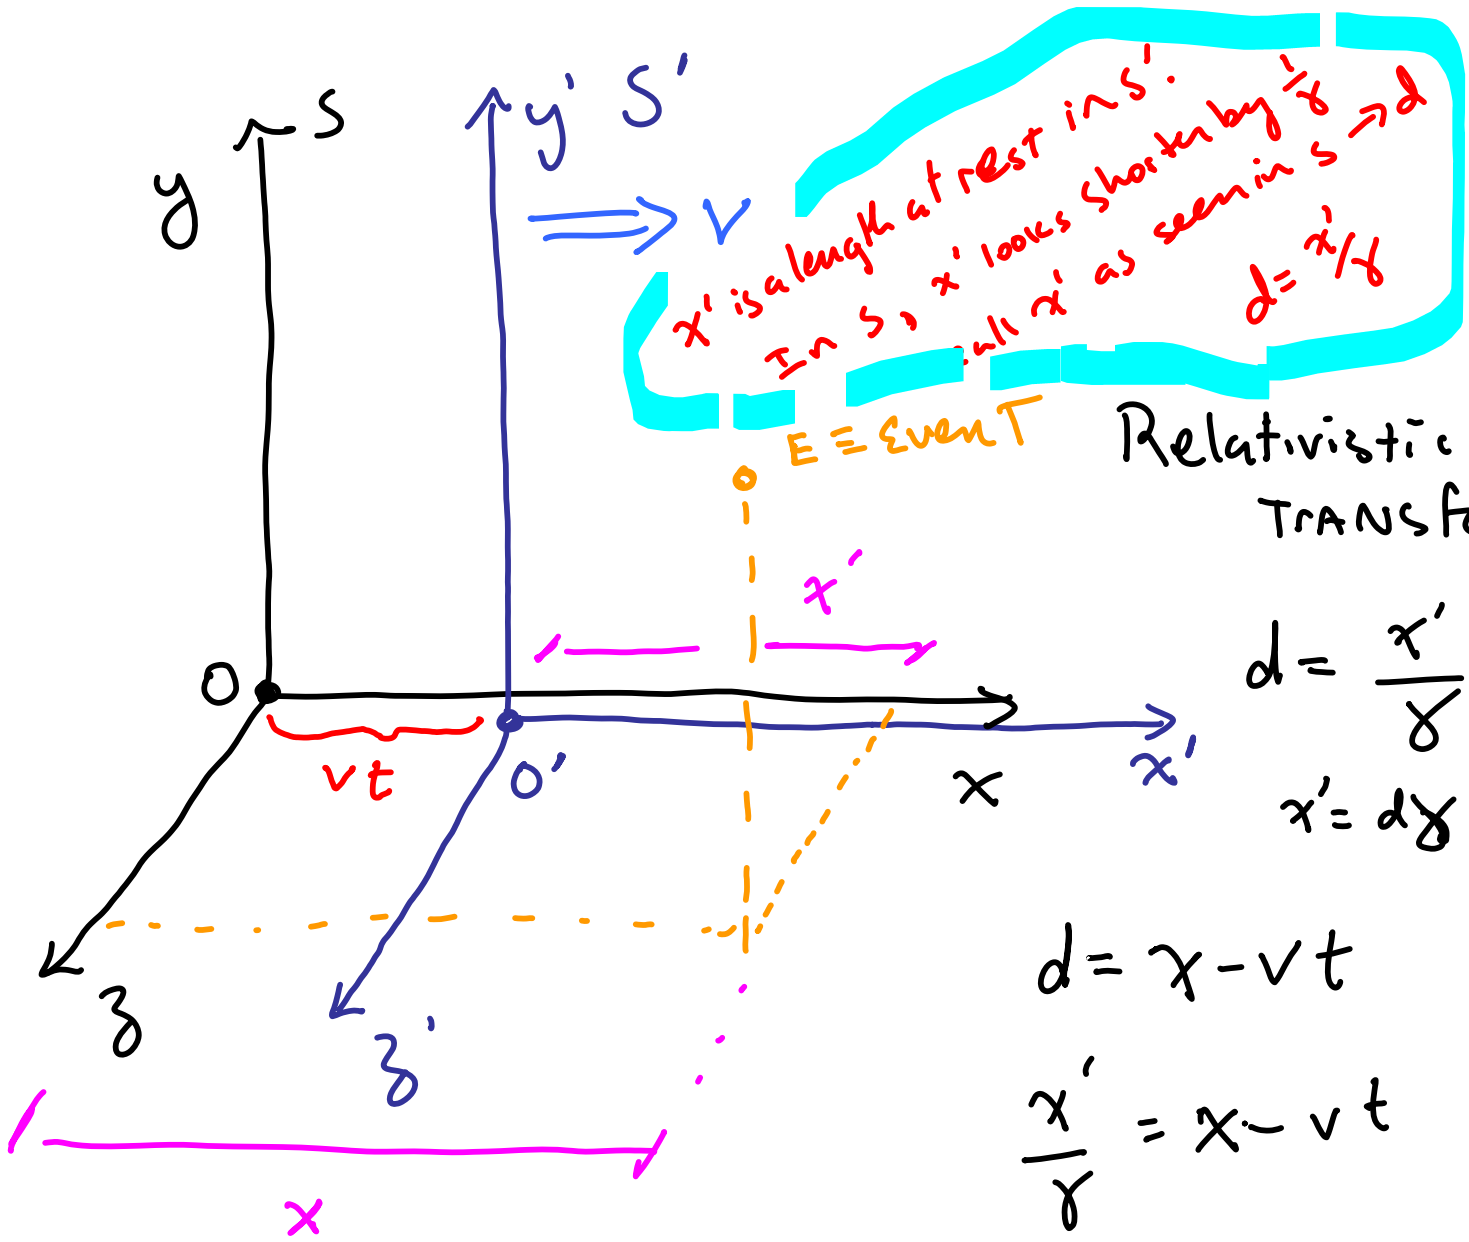 S
y
y' S'
v
x' is a length at rest in S'.
In S, x' looks shorter by 1/γ
call x' as seen in S → d
d = x'/γ
E ≡ EvenT
Relativistic
TrANSfo
x'
O
vt
O'
x
x'
d = x'/γ
x' = dγ
z
z'
d = x - vt
x'/γ = x - vt
x